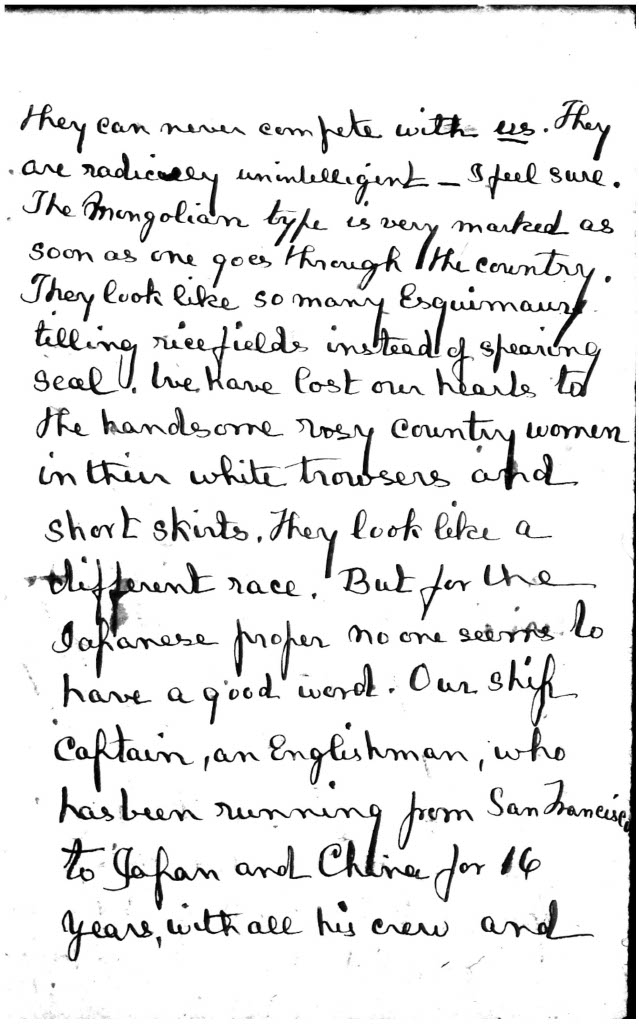 they can never compete with us. They
are radically unintelligent – I feel sure.
The Mongolian type is very marked as
soon as one goes through the country.
They look like so many Esquimaux
tilling ricefields instead of spearing
seal. We have lost our hearts to
the handsome rosy country women
in their white trowsers and
short skirts. They look like a
different race. But for the
Japanese proper no one seems to
have a good word. Our ship
Captain, an Englishman, who
has been running from San Francisco
to Japan and China for 16
years, with all his crew and